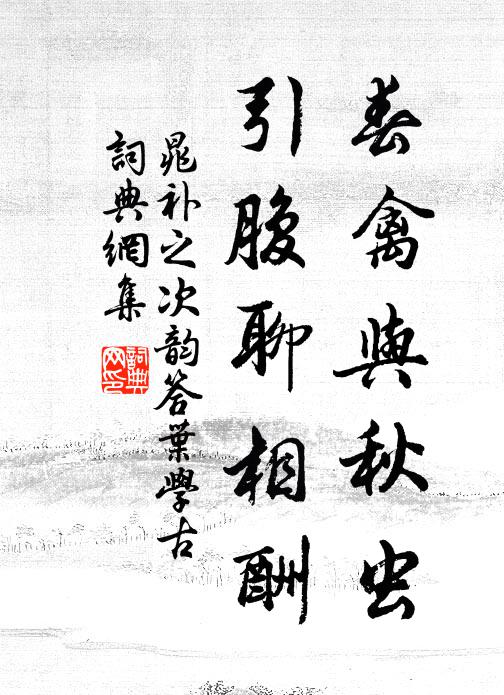 春禽與秋虫
引腹聊相酬
晁补之次韵答葉學古
詞典網集
詞典網印